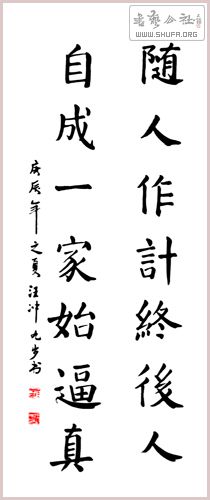 随人作計終後人
自成一家始逼真
庚辰年之夏汪冲九岁书
書藝公社
WWW.SHUFA.ORG